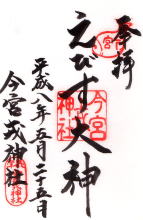 奉拝
えびす大神
今宮
神社
平成八年五月二十五日
今宮戎神社